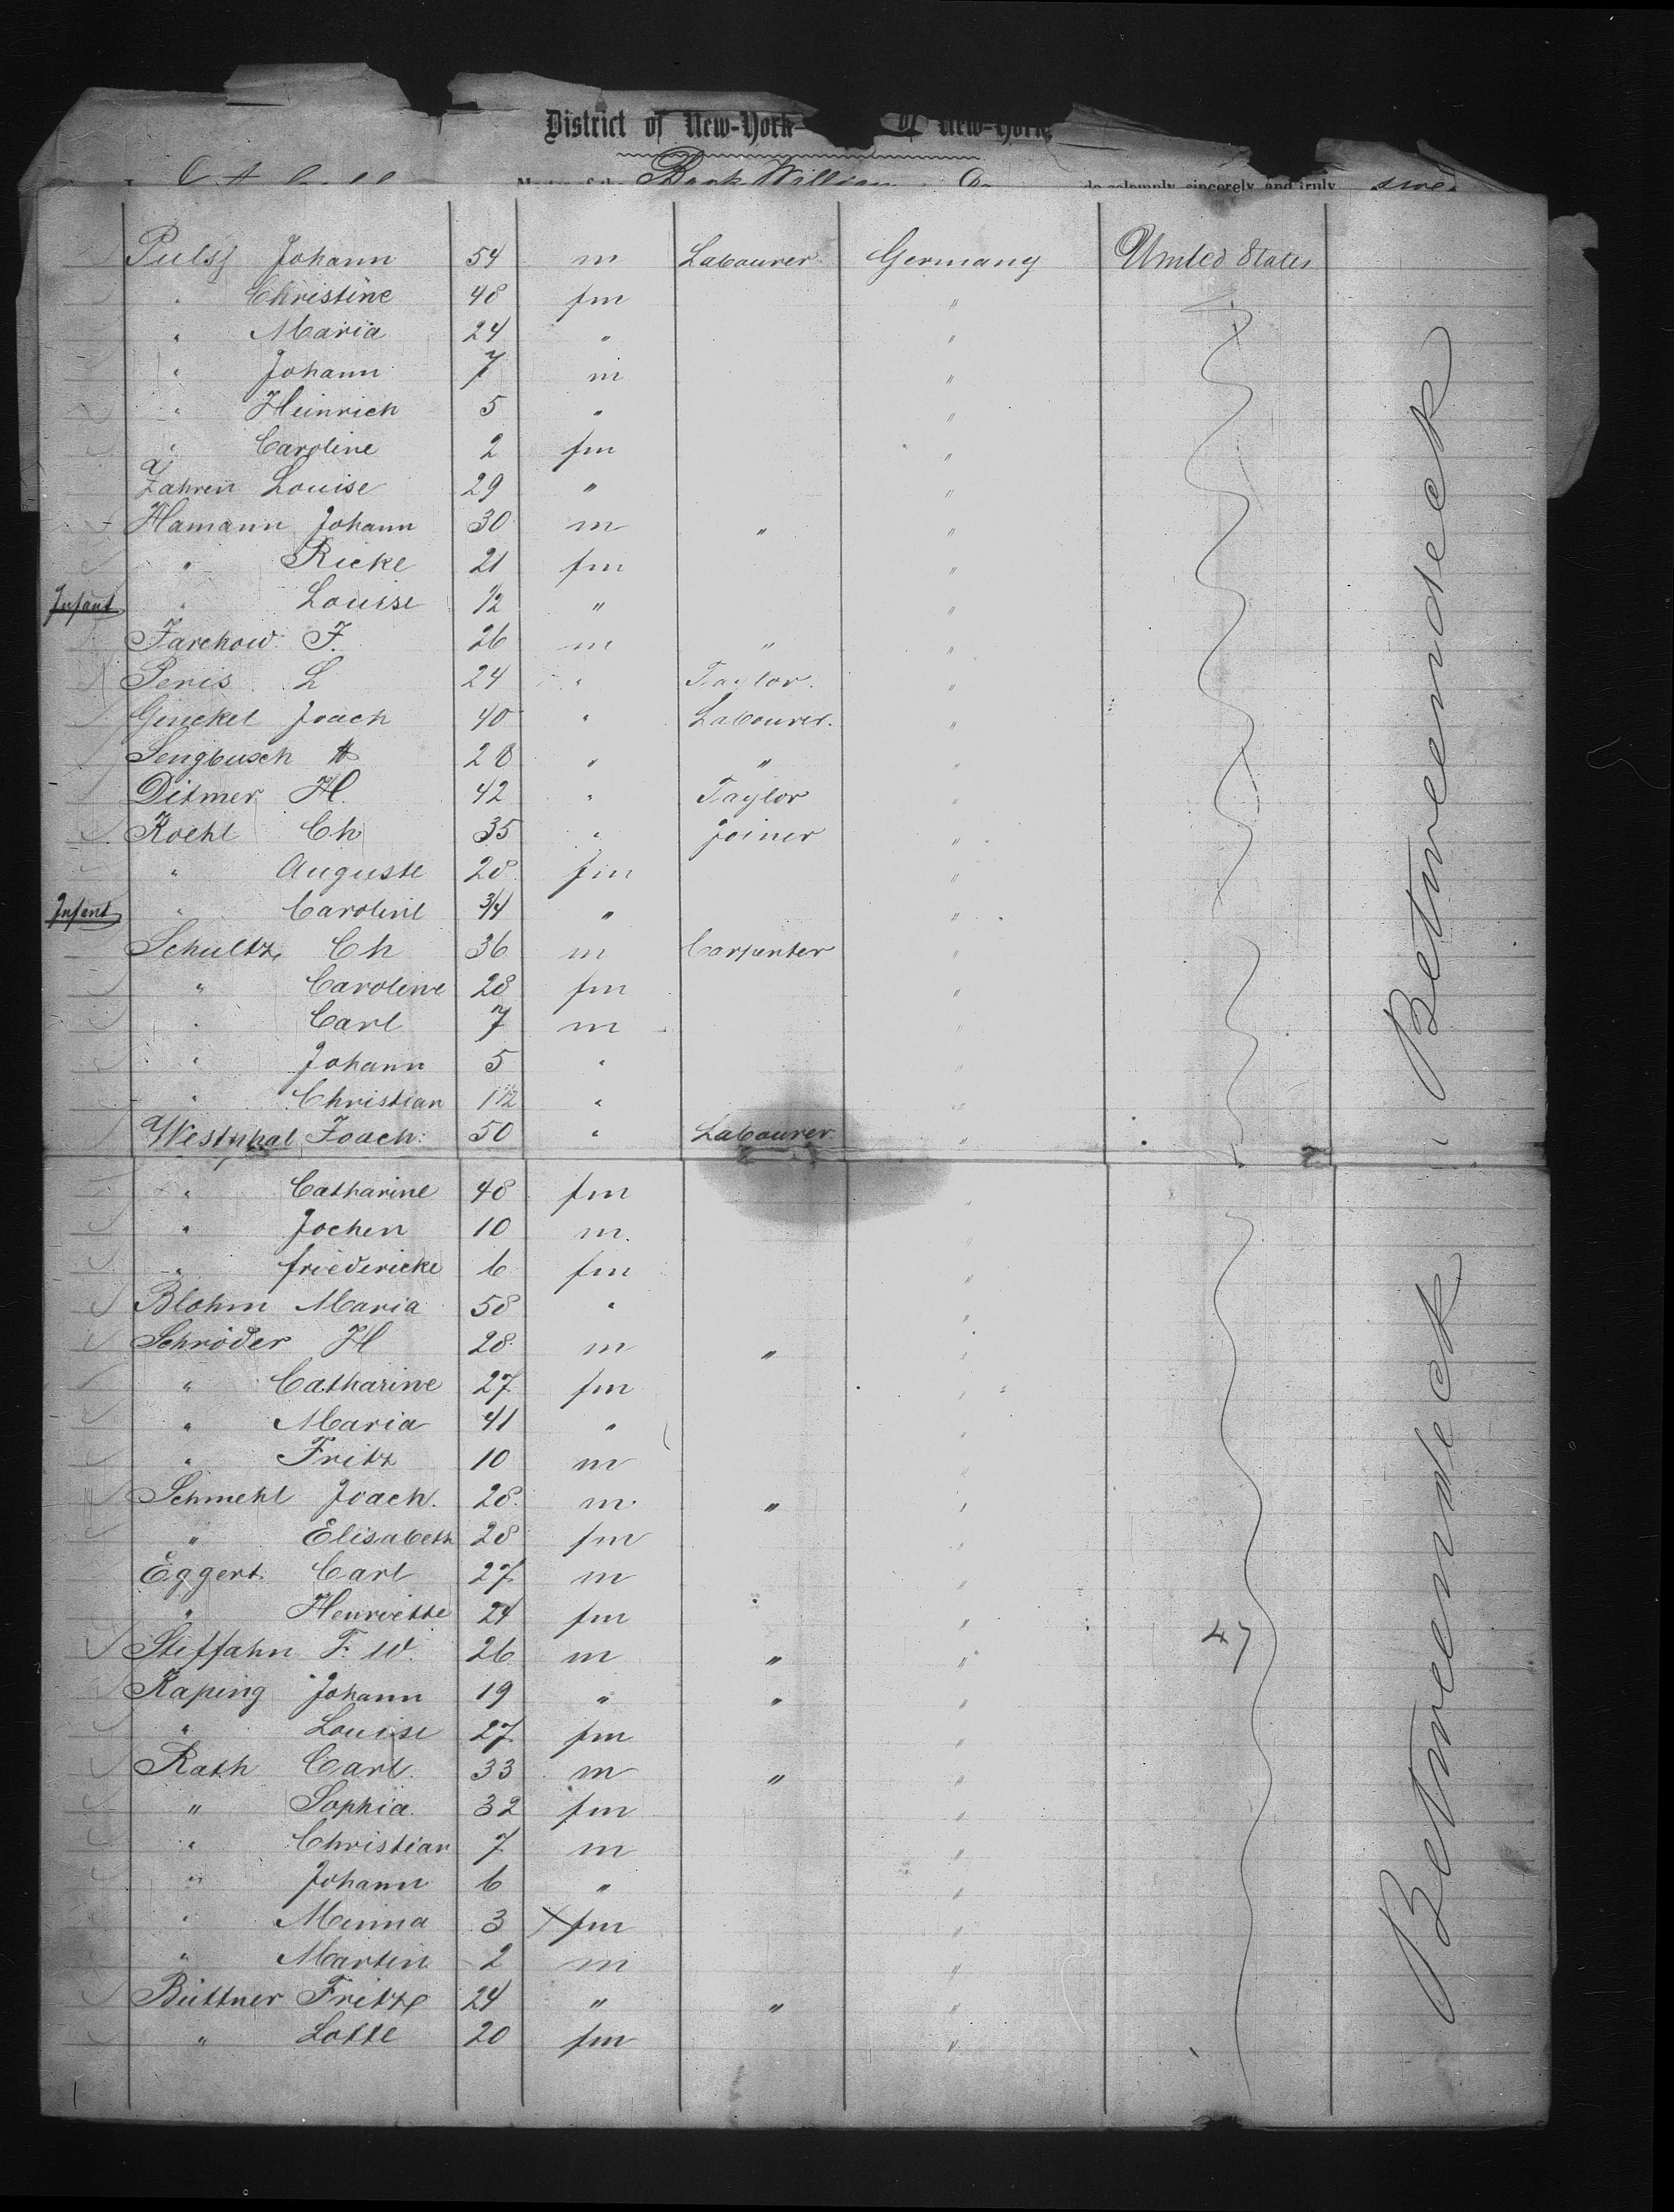 District of New-York of New-York
Bark William do solemnly, sincerely and truly
Puls Johann 54 m Labourer Germany United States
" Christine 48 fm "
" Maria 24 " "
" Johann 7 m "
" Heinrich 5 " "
" Caroline 2 fm "
Zahren Louise 29 " "
Hamann Johann 30 m " "
" Rieke 21 fm "
Infant " Louise 1/2 " "
Jarchow F. 26 m " "
Peris L 24 " Taylor "
Ginckel Joach 40 " Labourer. "
Sengbusch 28 " " "
Ditmer H. 42 " Taylor "
Koehl Ch 35 " Joiner "
" Auguste 28 fm "
Infant " Caroline 3/4 " "
Schultz Ch 36 m Carpenter "
" Caroline 28 fm "
" Carl 7 m "
" Johann 5 " "
" Christian 1 1/2 " "
Westphal Joach: 50 " Labourer "
" Catharine 48 fm "
" Jochen 10 m. "
" friedericke 6 fm "
Blohm Maria 58 " "
Schröder H 28 m " "
" Catharine 27 fm "
" Maria 41 " "
" Fritz 10 m "
Schmehl Joach. 28 m " "
" Elisabeth 28 fm "
Eggert Carl 27 m "
" Henriette 24 fm "
Steffahn F. W. 26 m " " 47
Kaping Johann 19 " " "
" Louise 27 fm "
Rath Carl 33 m " "
" Sophia 32 fm "
" Christian 7 m "
" Johann 6 " "
" Minna 3 fm "
" Martin 2 m "
Büttner Fritz 24 " " "
" Lotte 20 fm "
Betweendeck
Betweendeck